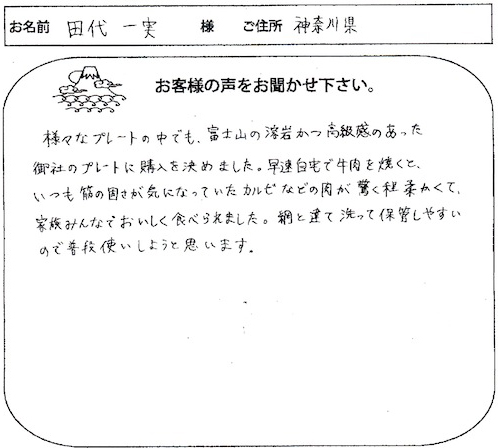 お名前 田代 一実 様 ご住所 神奈川県
お客様の声をお聞かせ下さい。
様々なプレートの中でも、富士山の溶岩かつ高級感のあった
御社のプレートに購入を決めました。早速自宅で牛肉を焼くと、
いつも筋の固さが気になっていたカルビなどの肉が驚く程柔かくて、
家族みんなでおいしく食べられました。網と違て洗って保管しやすい
ので普段使いしようと思います。